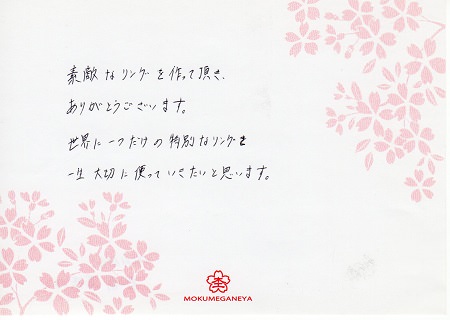 素敵なリングを作って頂き、
ありがとうございます。
世界に一つだけの特別なリングを
一生大切に使っていきたいと思います。
MOKUMEGANEYA